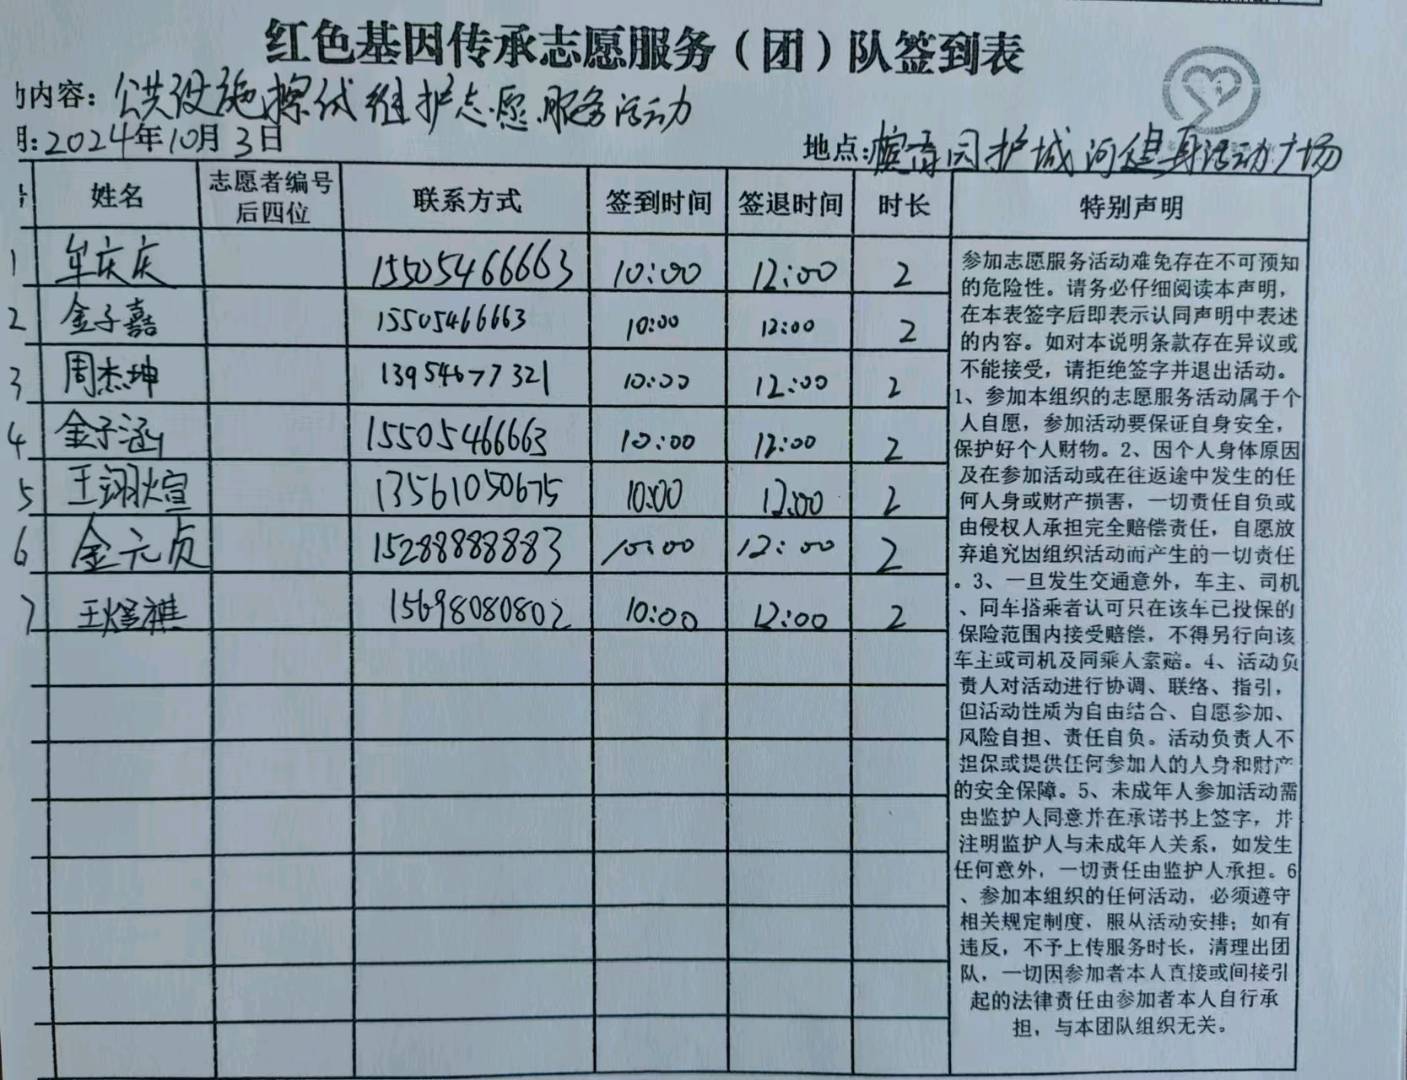 红色基因传承志愿服务（团）队签到表
内容：公共设施擦拭维护志愿服务活动
：2024年10月3日
地点：园护城河健身活动广场
姓名 志愿者编号后四位 联系方式 签到时间 签退时间 时长 特别声明
1 牟庆庆 15505466663 10:00 12:00 2
2 金子嘉 15505466663 10:00 12:00 2
3 周杰坤 13954677321 10:00 12:00 2
4 金子涵 15505466663 10:00 12:00 2
5 王翊煊 13561050675 10:00 12:00 2
6 金元贞 15288888883 10:00 12:00 2
7 王煜祺 15698080802 10:00 12:00 2
参加志愿服务活动难免存在不可预知
的危险性。请务必仔细阅读本声明，
在本表签字后即表示认同声明中表述
的内容。如对本说明条款存在异议或
不能接受，请拒绝签字并退出活动。
1、参加本组织的志愿服务活动属于个
人自愿，参加活动要保证自身安全，
保护好个人财物。2、因个人身体原因
及在参加活动或在往返途中发生的任
何人身或财产损害，一切责任自负或
由侵权人承担完全赔偿责任，自愿放
弃追究因组织活动而产生的一切责任
。3、一旦发生交通意外，车主、司机
、同车搭乘者认可只在该车已投保的
保险范围内接受赔偿，不得另行向该
车主或司机及同乘人索赔。4、活动负
责人对活动进行协调、联络、指引，
但活动性质为自由结合、自愿参加、
风险自担、责任自负。活动负责人不
担保或提供任何参加人的人身和财产
的安全保障。5、未成年人参加活动需
由监护人同意并在承诺书上签字，并
注明监护人与未成年人关系，如发生
任何意外，一切责任由监护人承担。6
、参加本组织的任何活动，必须遵守
相关规定制度，服从活动安排；如有
违反，不予上传服务时长，清理出团
队，一切因参加者本人直接或间接引
起的法律责任由参加者本人自行承
担，与本团队组织无关。